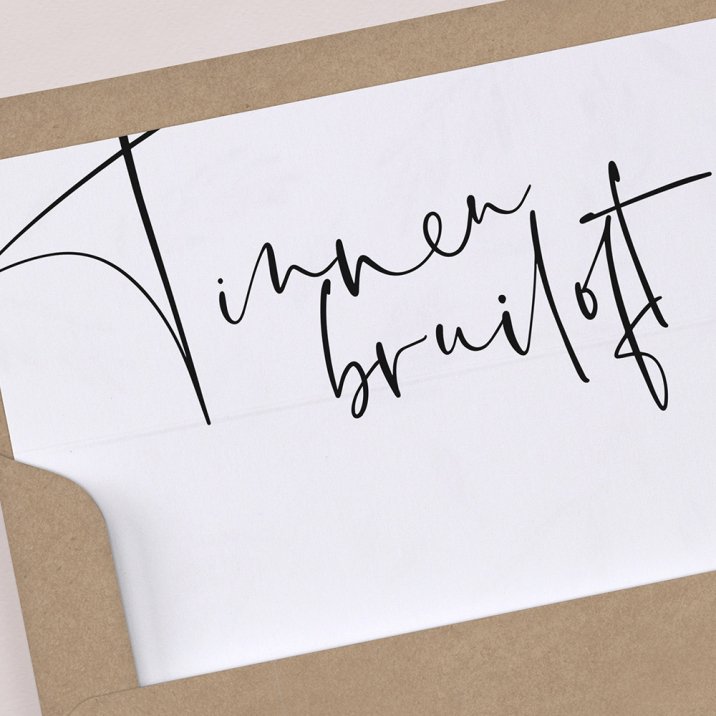 Tinnen
bruiloft